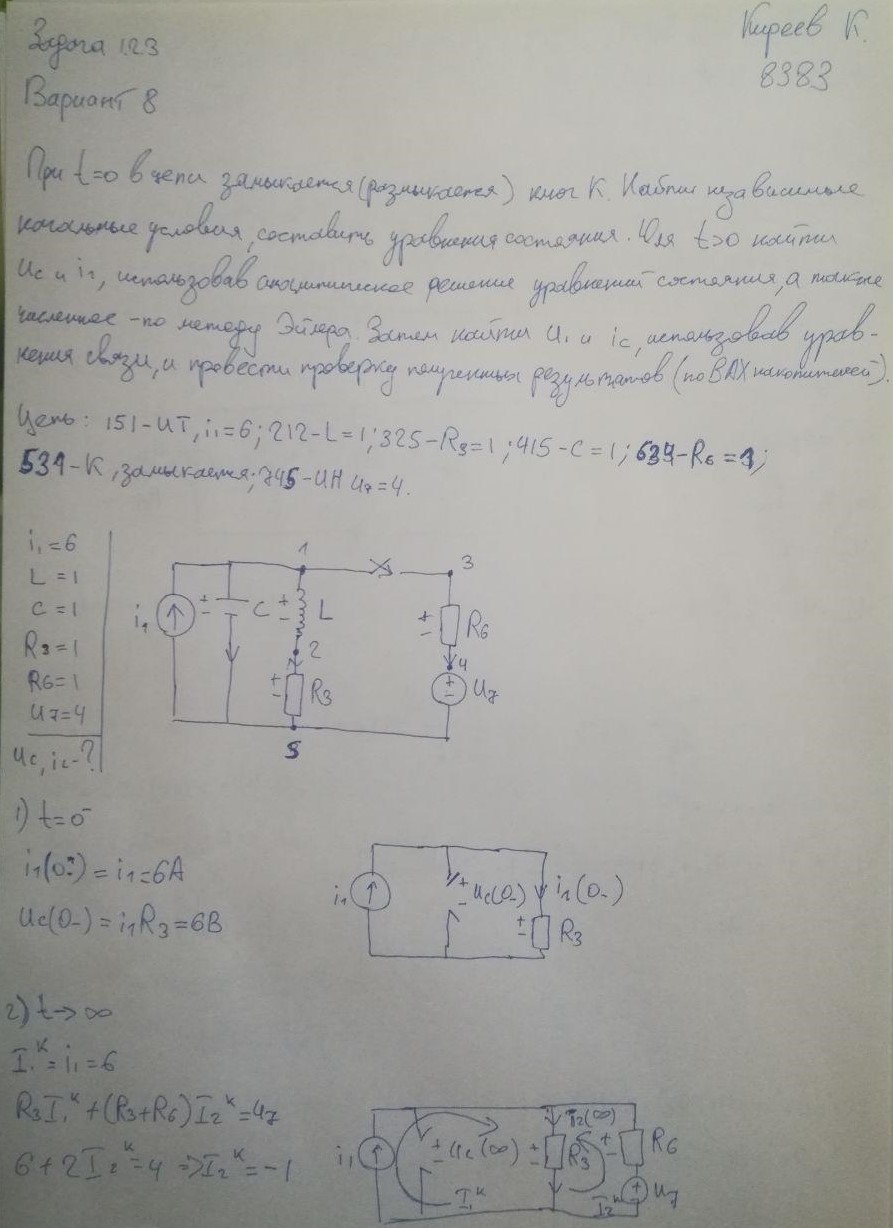 Задача 1.23
Киреев К.
8383
Вариант 8
При t=0 в цепи замыкается (размыкается) ключ К. Найти независимые
начальные условия, составить уравнения состояния. Для t>0 найти
Uc и iL, использовав аналитическое решение уравнений состояния, а также
численное - по методу Эйлера. Затем найти U1 и ic, использовав урав-
нения связи, и провести проверку полученных результатов (по ВАХ накопителей).
Цепь: 151-ИТ, i1=6; 212-L=1; 325-R3=1; 415-C=1; 634-R6=1;
531-К, замыкается; 745-ИН U7=4.
i1=6
L=1
C=1
R3=1
R6=1
U7=4
Uc, iL-?
i1
+
-
C
1
+
-
L
2
+
-
R3
5
3
+
-
R6
4
+
-
U7
1) t=0-
i1(0-) = i1=6A
Uc(0-) = i1R3=6В
i1
+
-
Uc(0-)
i2(0-)
+
-
R3
2) t→∞
I1к=i1=6
R3I1к+(R3+R6)I2к=U7
6+2I2к=4 =>I2к=-1
i1
+
-
Uc(∞)
I1к
i2(∞)
+
-
R3
I2к
+
-
R6
+
U7